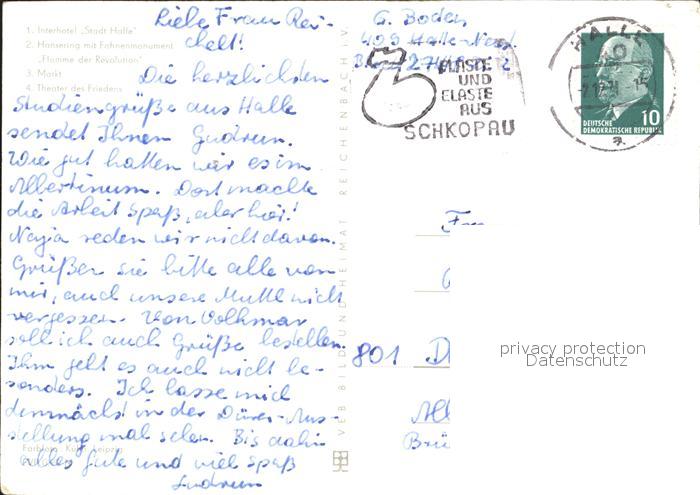 Liebe Frau Rei-
chelt!
1. Interhotel „Stadt Halle"
2. Hansering mit Fahnenmonument
„Flamme der Revolution"
3. Markt
4. Theater des Friedens
Die herzlichsten
Studiengrüße aus Halle
sendet Ihnen Gudrun.
Wie gut hatten wir es im
Albertinum. Dort machte
die Arbeit Spaß, aber hier!
Naja reden wir nicht davon.
Grüßen sie bitte alle von
mir, auch unsere Mutti nicht
vergessen. Von Volkmar
soll ich auch Grüße bestellen.
Ihm geht es auch nicht be-
sonders. Ich lasse mich
demnächst in der Dürer-Aus-
stellung mal sehen. Bis dahin
alles Gute und viel Spaß
Gudrun
VEB BILD UND HEIMAT REICHENBACH i. V.
G. Boden
409 Halle-Neust.
PLASTE
UND
ELASTE
AUS
SCHKOPAU
HALLE
DEUTSCHE
DEMOKRATISCHE REPUBLIK
10
801 D
privacy protection
Datenschutz